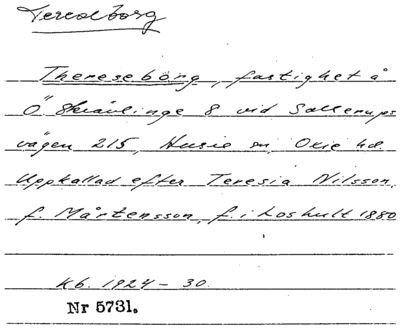 Teresborg
Thereseborg, fastighet å
Ö Skrävlinge 8 vid Sallerups
vägen 215, Husie sn, Oxie hd.
Uppkallad efter Teresia Nilsson,
f. Mårtensson, f. i Loshult 1880
Kb. 1924 - 30.
Nr 5731.